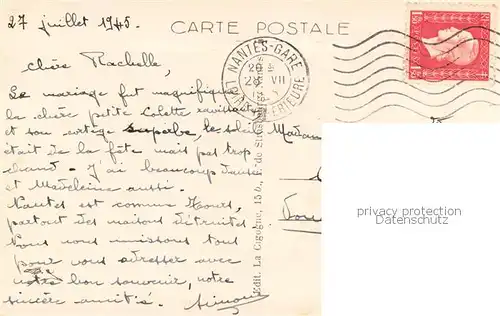 27 juillet 1945.
CARTE POSTALE
Chère Rachelle,
Le mariage fut magnifique
la chère petite Colette ravissante
et son cortège superbe, le soleil
était de la fête mais pas trop
chaud. J'ai beaucoup dansé
et Madeleine aussi.
Nantes est comme Tours,
partout des maisons détruites
Nous nous unissons tous
pour vous adresser avec
notre bon souvenir, notre
sincère amitié. Simone
Edit. La Cigogne, 15 b., R. de Strasbourg, Nantes
NANTES-GARE
28 VII
LOIRE INFERIEURE
Madame
privacy protection
Adressenschutz